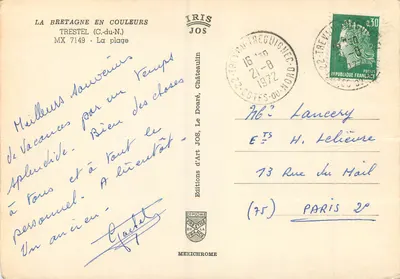 LA BRETAGNE EN COULEURS
TRESTEL (C.-du-N.)
MX 7149 - La plage
IRIS
JOS
Meilleurs souvenirs
de vacances par un temps
splendide. Bien des choses
à tous et à tout le
personnel. A bientôt.
Un ancien.
Editions d'Art JOS, Le Doaré, Châteaulin
MEXICHROME
22 TREVOU-TREGUIGNEC
16 H
21-8
1972
COTES-DU-NORD
0,30
REPUBLIQUE FRANÇAISE
Lancery
Ets H. Lelièvre
13 Rue du Mail
(75) PARIS 2e